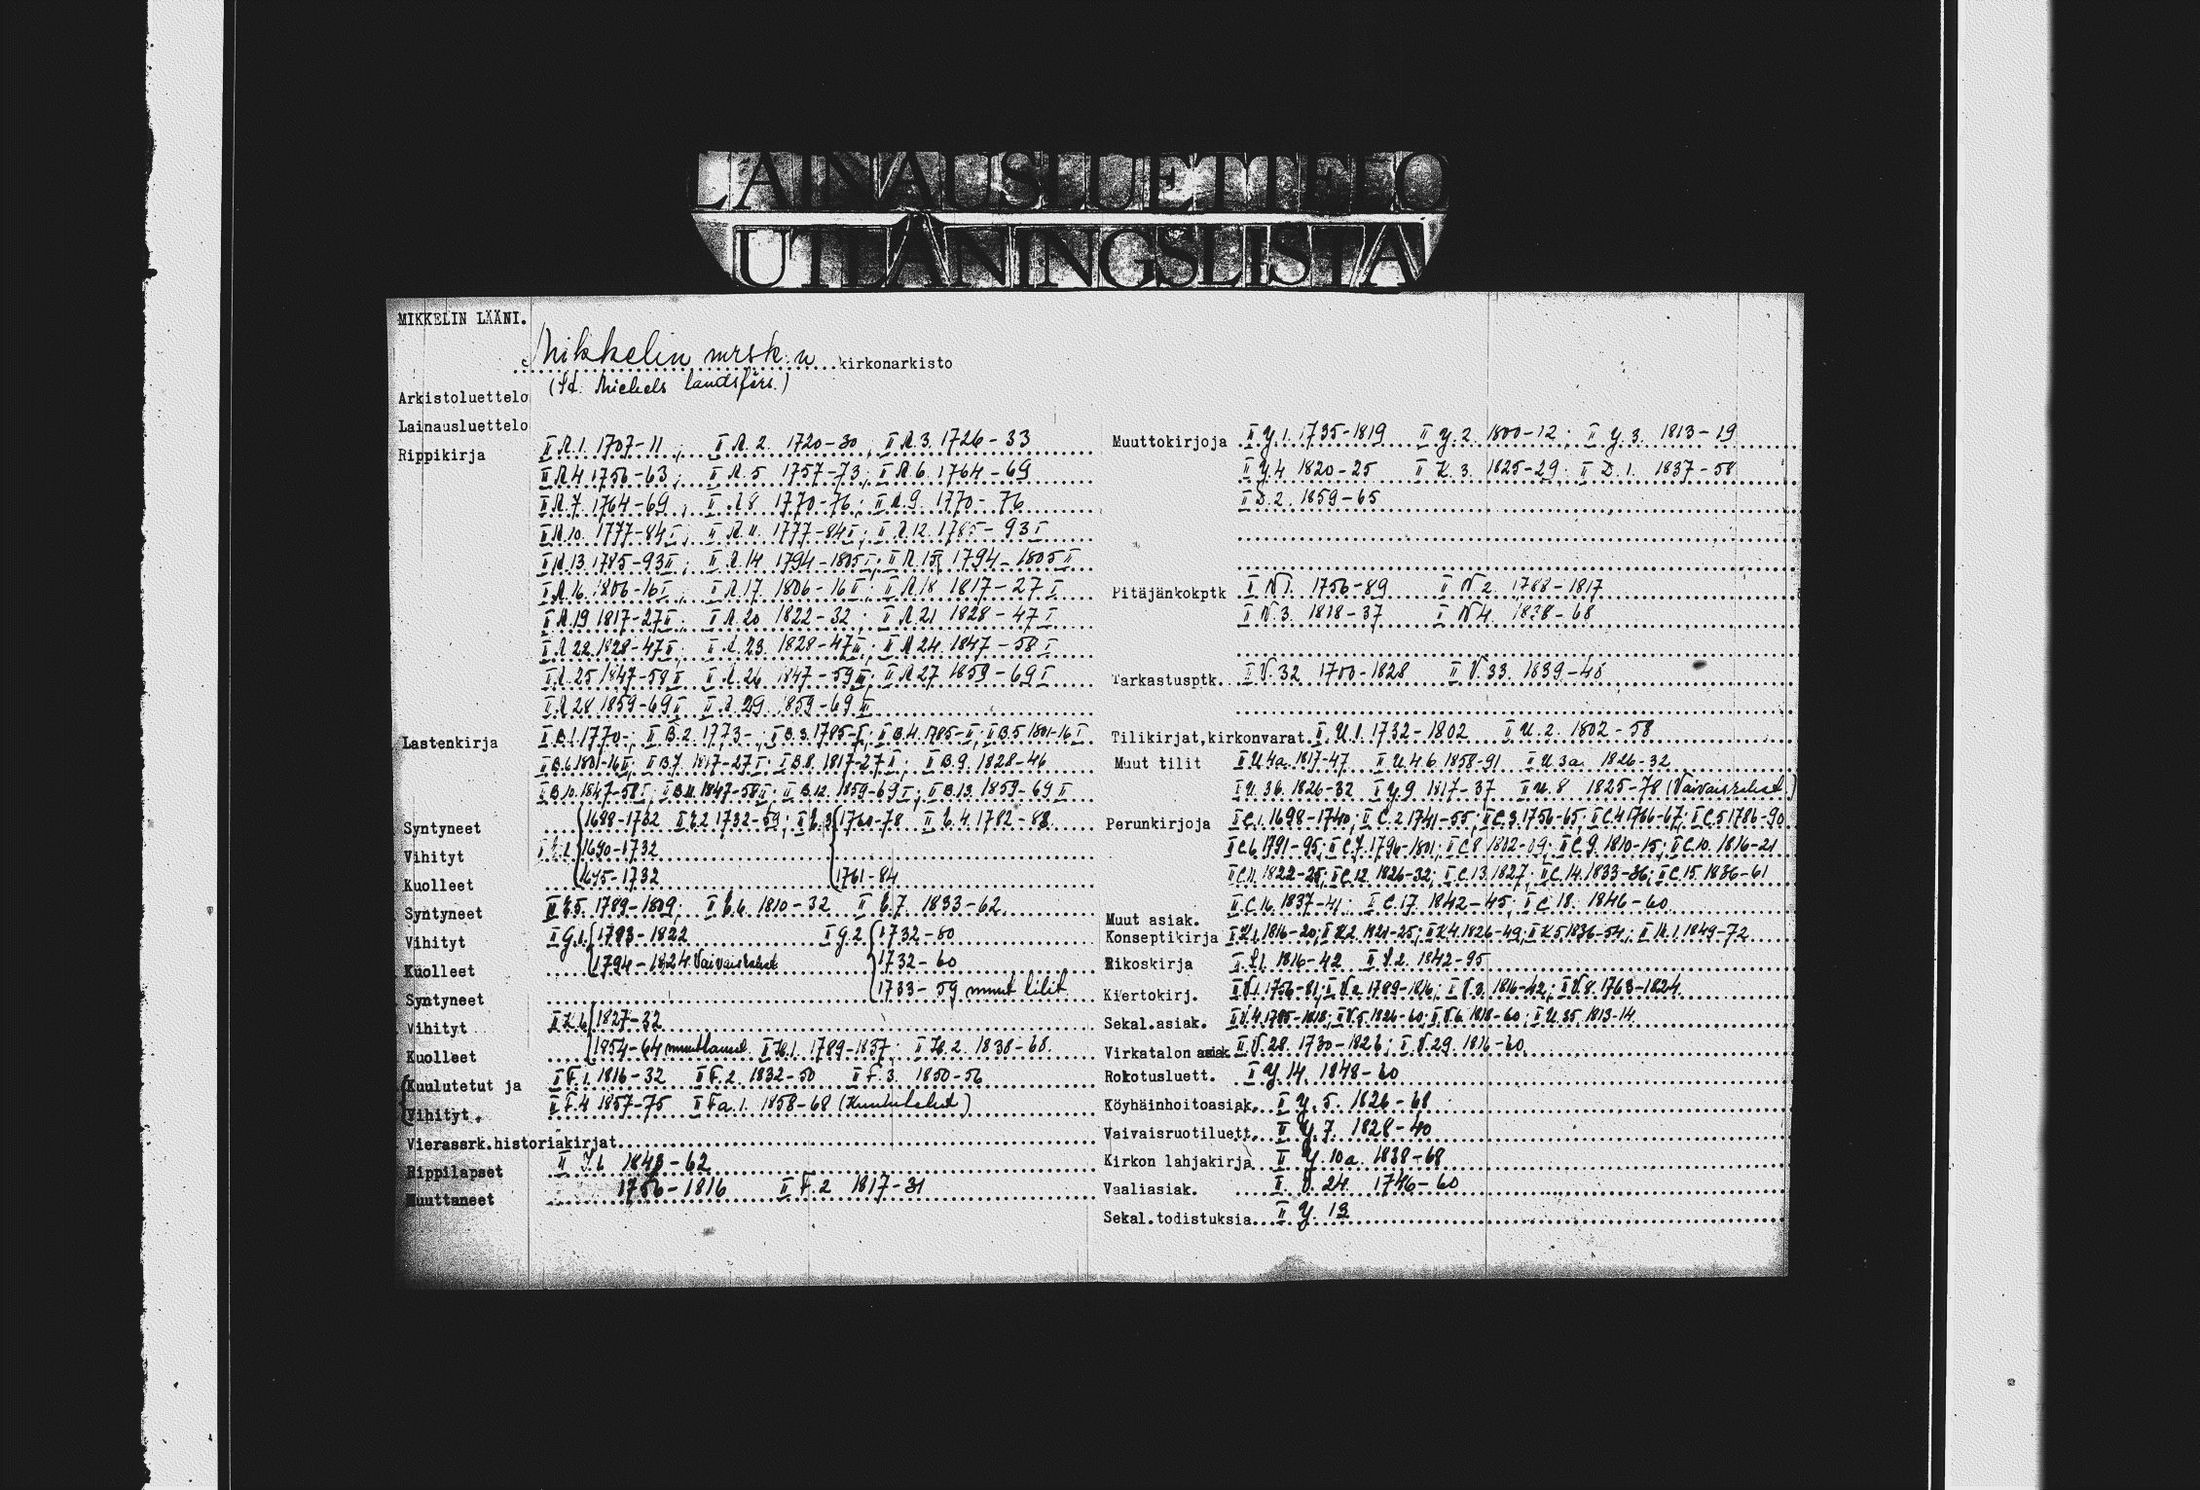 LAINAUSLUETTELO
UTLÅNINGSLISTA
MIKKELIN LÄÄNI.
Mikkelin mrsk:n kirkonarkisto
(St. Michels landsförs.)
Arkistoluettelo
Lainausluettelo
Rippikirja II A.1. 1707-11; II A.2. 1720-30; II A.3. 1726-33
II A.4. 1756-63; II A.5 1757-73; II A.6. 1764-69
II A.7. 1764-69; II A.8 1770-76; II A.9. 1770-76
II A.10. 1777-84 I; II A.11. 1777-84 I; II A.12. 1785-93 I
II A.13. 1785-93 II; II A.14 1794-1805 I; II A.15 1794-1805 II
II A.16. 1806-16 I; II A.17. 1806-16 II; II A.18 1817-27 I
II A.19 1817-27 II; II A.20 1822-32; II A.21 1828-47 I
II A.22. 1828-47 II; II A.23. 1828-47 III; II A.24. 1847-58 I
II A.25 1847-59 II II A.26 1847-59 III; II A.27 1859-69 I
II A.28 1859-69 II II A.29. 1859-69 III
Lastenkirja II B.1. 1770-; II B.2. 1773-; II B.3. 1785-I; II B.4. 1785-II; II B.5 1801-16 I
II B.6. 1801-16 II; II B.7. 1817-27 I; II B.8. 1817-27 II; II B.9. 1828-46
II B.10. 1847-58 I; II B.11. 1847-58 II; II B.12. 1859-69 I; II B.13. 1859-69 II
Syntyneet 1688-1732 1732-59; 1760-78 1782-88
Vihityt 1690-1732
Kuolleet 1695-1732 1761-84
Syntyneet 1789-1809; 1810-32 1833-62
Vihityt II G.1. 1793-1822 II G.2. 1732-80
Kuolleet 1794-1824 Vaivaisrahat 1732-60
Syntyneet 1733-59 muut tilit
Vihityt 1827-32
Kuolleet 1954-64 II H.1. 1789-1837; II H.2. 1838-68.
Kuulutetut ja II F.1. 1816-32 II F.2. 1832-50 II F.3. 1850-56
Vihityt. II F.4 1857-75 II Fa.1. 1858-68
Vierassrk.historiakirjat
Rippilapset II 1843-62
Muuttaneet 1786-1816 II F.2 1817-31
Muuttokirjoja II Y.1. 1735-1819 II Y.2. 1800-12; II Y.3. 1813-19
II Y.4 1820-25 II K.3. 1825-29; II D.1. 1837-58
II D.2. 1859-65
Pitäjänkokptk II N1. 1756-89 II N2. 1788-1817
II N.3. 1818-37 II N4. 1838-68
Tarkastusptk. II V.32 1700-1828 II V.33. 1839-48
Tilikirjat,kirkonvarat II U.1. 1732-1802 II U.2. 1802-58
Muut tilit II U.4a. 1817-47 II U.4b. 1858-91 II U.3a. 1826-32
II U.3b. 1826-32 II Y.9 1817-37 II U.8 1825-78 (Vaivaisrahat.)
Perunkirjoja II C.1. 1698-1740; II C.2 1741-55; II C.3. 1756-65; II C.4 1766-67; II C.5 1786-90
II C.6. 1791-95; II C.7. 1796-1801; II C.8 1802-09; II C.9. 1810-15; II C.10. 1816-21
II C.11. 1822-25; II C.12. 1826-32; II C.13. 1827; II C.14. 1833-36; II C.15. 1836-61
II C.16. 1837-41; II C.17. 1842-45; II C.18. 1846-60
Muut asiak.
Konseptikirja II K.1. 1816-20; II K.2. 1821-25; II K.4. 1826-49; II K.5 1836-54; 1849-72
Rikoskirja 1816-42 1842-95
Kiertokirj. II V.1. 1756-81; II V.2. 1789-1816; II V.3. 1816-42; II V.8. 1763-1824
Sekal.asiak. II V.4. 1785-1818; II V.5. 1826-60; II V.6. 1818-60; II U.35. 1813-14
Virkatalon asiak. II V.28. 1730-1826; II V.29. 1816-60
Rokotusluett. II Y.14. 1848-60
Köyhäinhoitoasiak. II Y.5. 1826-68
Vaivaisruotiluett. II Y.7. 1828-40
Kirkon lahjakirja II Y.10a. 1838-68
Vaaliasiak. II V.24. 1746-60
Sekal.todistuksia II Y.13